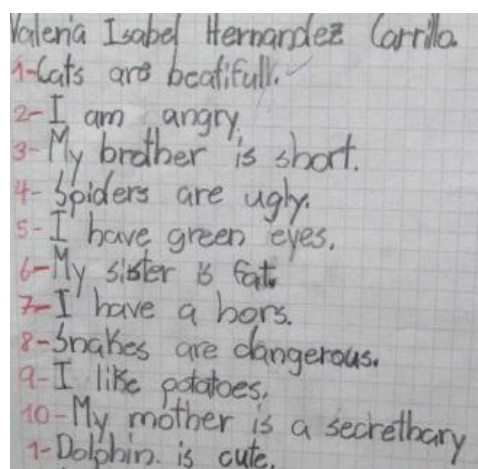 Valeria Isabel Hernandez Carrilla
1-Cats are beatifull.
2-I am angry.
3-My brother is short.
4-Spiders are ugly.
5-I have green eyes.
6-My sister is fat.
7-I have a hors.
8-Snakes are dangerous.
9-I like potatoes.
10-My mother is a secrethary
1-Dolphin is cute.